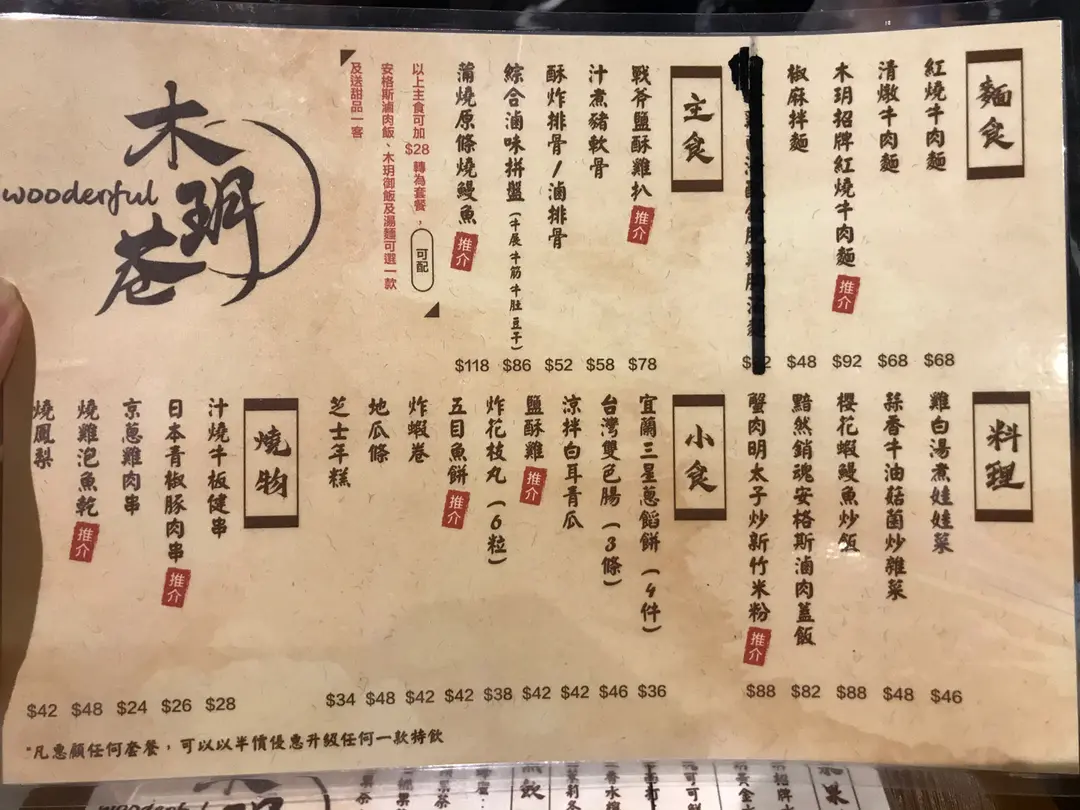 麵食
紅燒牛肉麵 $68
清燉牛肉麵 $68
木玥招牌紅燒牛肉麵 推介 $92
椒麻拌麵 $48
主食
戰斧鹽酥雞扒 推介 $78
汁煮豬軟骨 $58
酥炸排骨/滷排骨 $52
綜合滷味拼盤(牛展牛筋牛肚豆干) $86
蒲燒原條燒鰻魚 推介 $118
以上主食可加$28轉為套餐,可配
安格斯滷肉飯、木玥御飯及湯麵可選一款
及送甜品一客
木玥巷
wooderful
料理
雞白湯煮娃娃菜 $46
蒜香牛油菇菌炒雜菜 $48
櫻花蝦鰻魚炒飯 $88
黯然銷魂安格斯滷肉蓋飯 $82
蟹肉明太子炒新竹米粉 推介 $88
小食
宜蘭三星蔥餡餅(4件) $36
台灣雙色腸(3條) $46
涼拌白耳青瓜 $42
鹽酥雞 推介 $42
炸花枝丸(6粒) $38
五目魚餅 推介 $42
炸蝦卷 $42
地瓜條 $48
芝士年糕 $34
燒物
汁燒牛板健串 $28
日本青椒豚肉串 推介 $26
京蔥雞肉串 $24
燒雞泡魚乾 推介 $48
燒鳳梨 $42
*凡惠顧任何套餐,可以以半價優惠升級任何一款特飲
wooderful